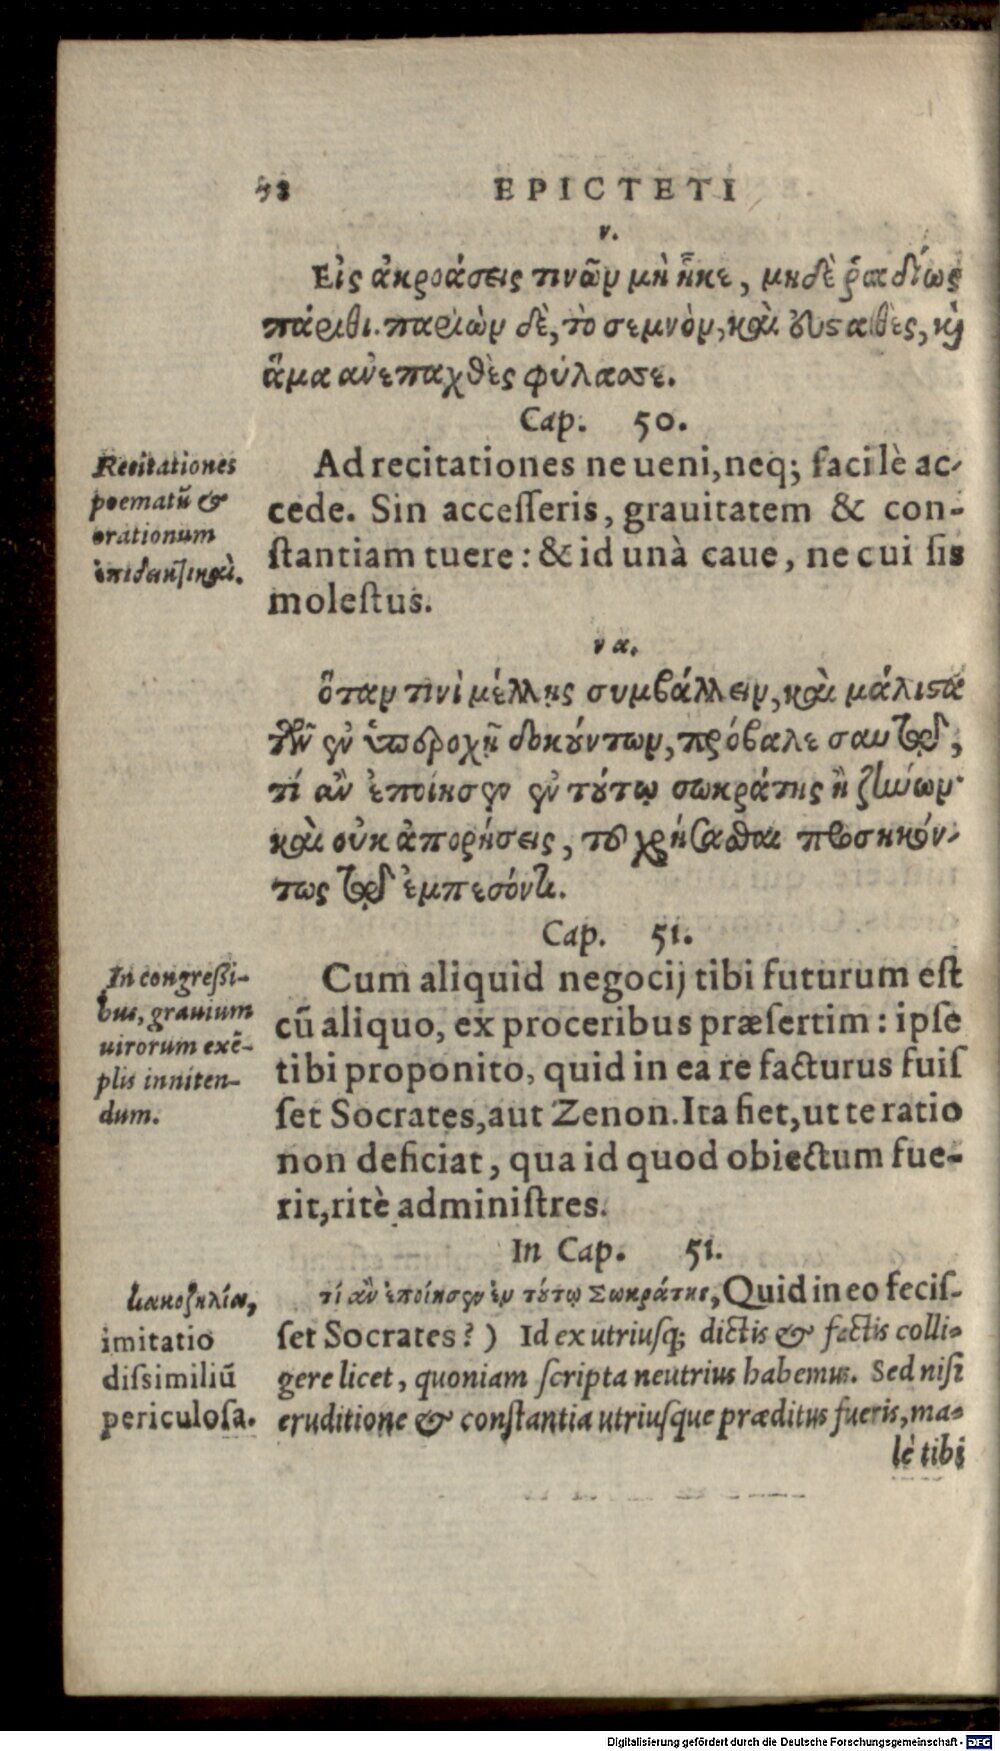 98 EPICTETI
ν.
Εἰς ἀκροάσεις τινῶν μὴ ἧκε, μηδὲ ῥαδίως
πάριθι. παριὼν δὲ, τὸ σεμνὸν, καὶ εὐσταθὲς, καὶ
ἅμα ἀνεπαχθὲς φύλασσε.
Cap. 50.
Recitationes
poematū &
orationum
ἐπιδεικτικαὶ.
Ad recitationes ne ueni, neq; facilè ac-
cede. Sin accesseris, grauitatem & con-
stantiam tuere: & id unà caue, ne cui sis
molestus.
να.
ὅταν τινὶ μέλλῃς συμβάλλειν, καὶ μάλιστα
τῶν ἐν ὑπεροχῇ δοκούντων, πρόβαλε σαυτῷ,
τί ἂν ἐποίησεν ἐν τούτῳ σωκράτης ἢ ζήνων·
καὶ οὐκ ἀπορήσεις, τοῦ χρήσασθαι προσηκόν-
τως τῷ ἐμπεσόντι.
Cap. 51.
In congressi-
bus, grauium
uirorum exē-
plis inniten-
dum.
Cum aliquid negocij tibi futurum est
cū aliquo, ex proceribus præsertim: ipse
tibi proponito, quid in ea re facturus fuis
set Socrates, aut Zenon. Ita fiet, ut te ratio
non deficiat, qua id quod obiectum fue-
rit, ritè administres.
In Cap. 51.
κακοζηλία,
imitatio
dissimiliū
periculosa.
τί ἂν ἐποίησεν ἐν τούτῳ Σωκράτης, Quid in eo fecis-
set Socrates?) Id ex utriusq; dictis & factis colli-
gere licet, quoniam scripta neutrius habemus. Sed nisi
eruditione & constantia utriusque præditus fueris, ma-
lè tibi
Digitalisierung gefördert durch die Deutsche Forschungsgemeinschaft - DFG